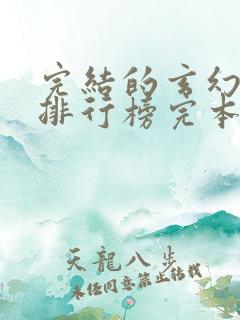 完結的玄幻
排行榜完本
天龍八步
未經同意禁止轉載